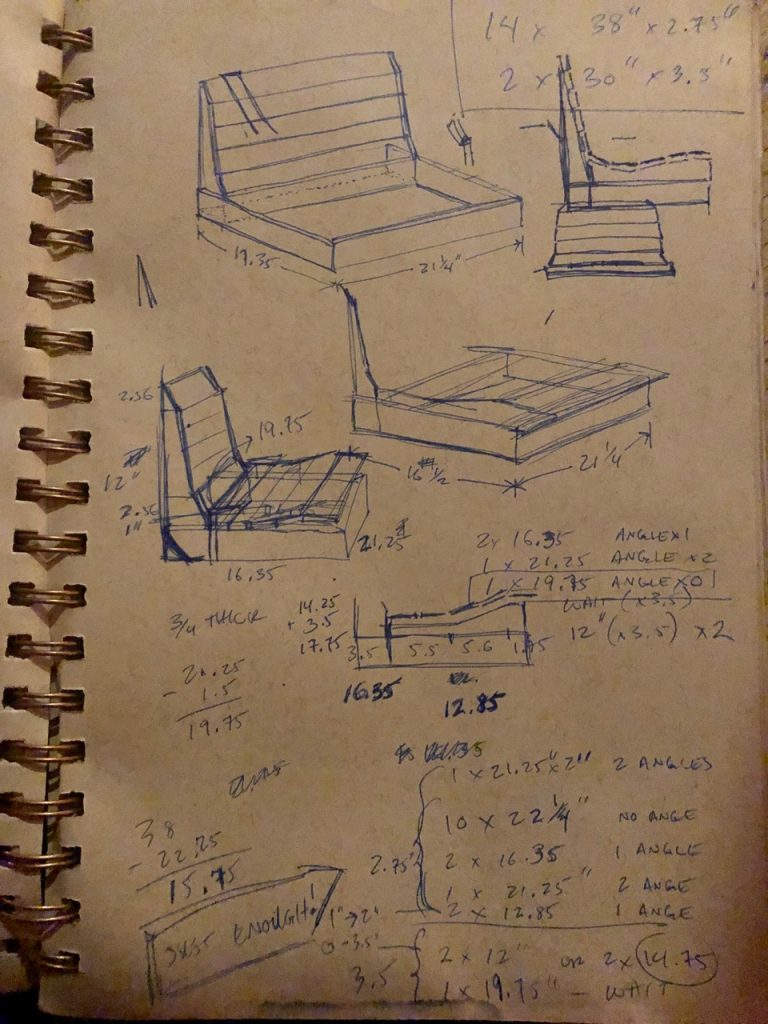 14 x 38" x 2.75"
2 x 30" x 3.5"
19.35
21 1/4"
2.56
19.75
12"
2.56
1"
16 1/2
21 1/4
21.25
16.35
2x 16.35 ANGLE x 1
1 x 21.25 ANGLE x 2
1 x 19.75 ANGLE x 0 1
WAIT (x3.5)
12" (x3.5) x2
3/4 THICK
14.25
+ 3.5
17.75
3.5 5.5 5.6 1.75
16.35
12.85
21.25
- 1.5
19.75
1 x 21.25" x 2" 2 ANGLES
10 x 22 1/4" NO ANGE
2 x 16.35 1 ANGLE
1 x 21.25" 2 ANGE
2 x 12.85 1 ANGE
2.75"
38
- 22.25
15.75
JUST ENOUGH!
1" → 2"
0 → 3.5"
3.5
2 x 12" OR 2 x 14.75
1 x 19.75" — WAIT